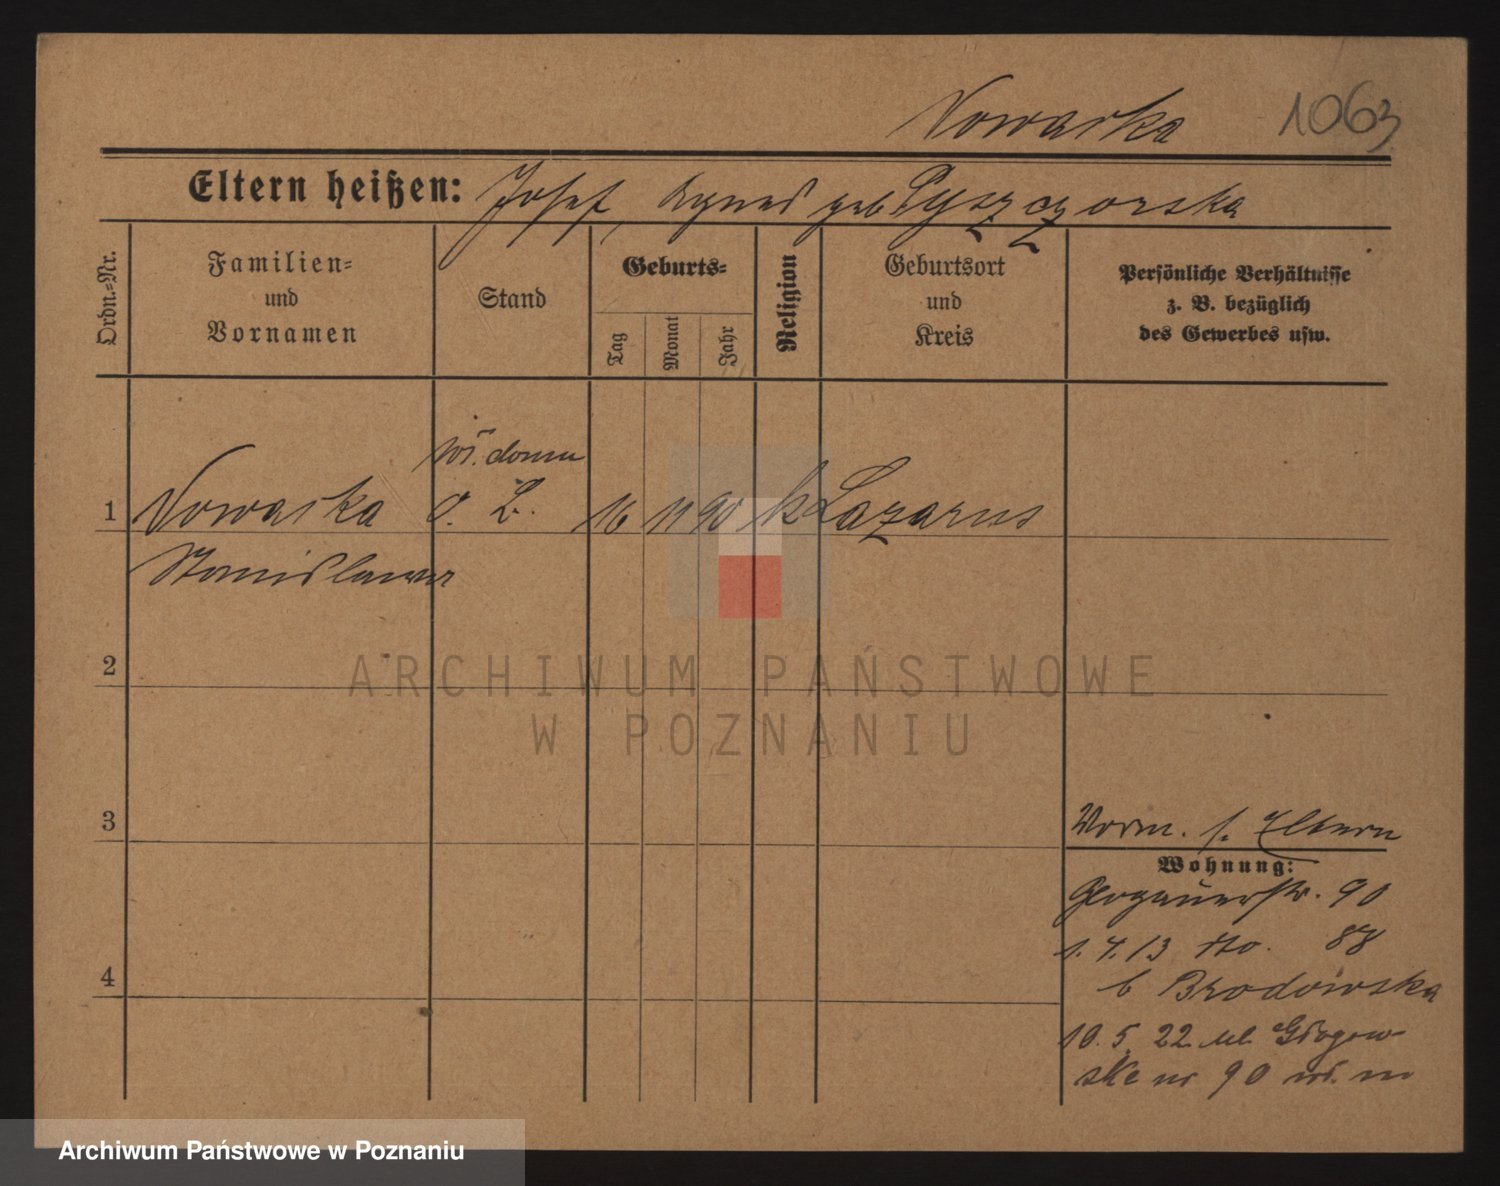 Nowaska 1063
Eltern heißen: Josef, Agnes geb Pyszczorska
Ordn.=Nr.
Familien=
und
Vornamen
Stand
Geburts=
Tag
Monat
Jahr
Religion
Geburtsort
und
Kreis
Persönliche Verhältnisse
z. B. bezüglich
des Gewerbes usw.
wł. domu
1 Nowaska o. B. 16 11 90 k Lazarus
Stanislawa
2
ARCHIWUM PAŃSTWOWE
W POZNANIU
3
Vorm. s. Eltern
Wohnung:
Glogauerstr. 90
1. 7. 13 88
4
b Brodowska
10. 5. 22 ul. Głogow-
ske nr 90
Archiwum Państwowe w Poznaniu